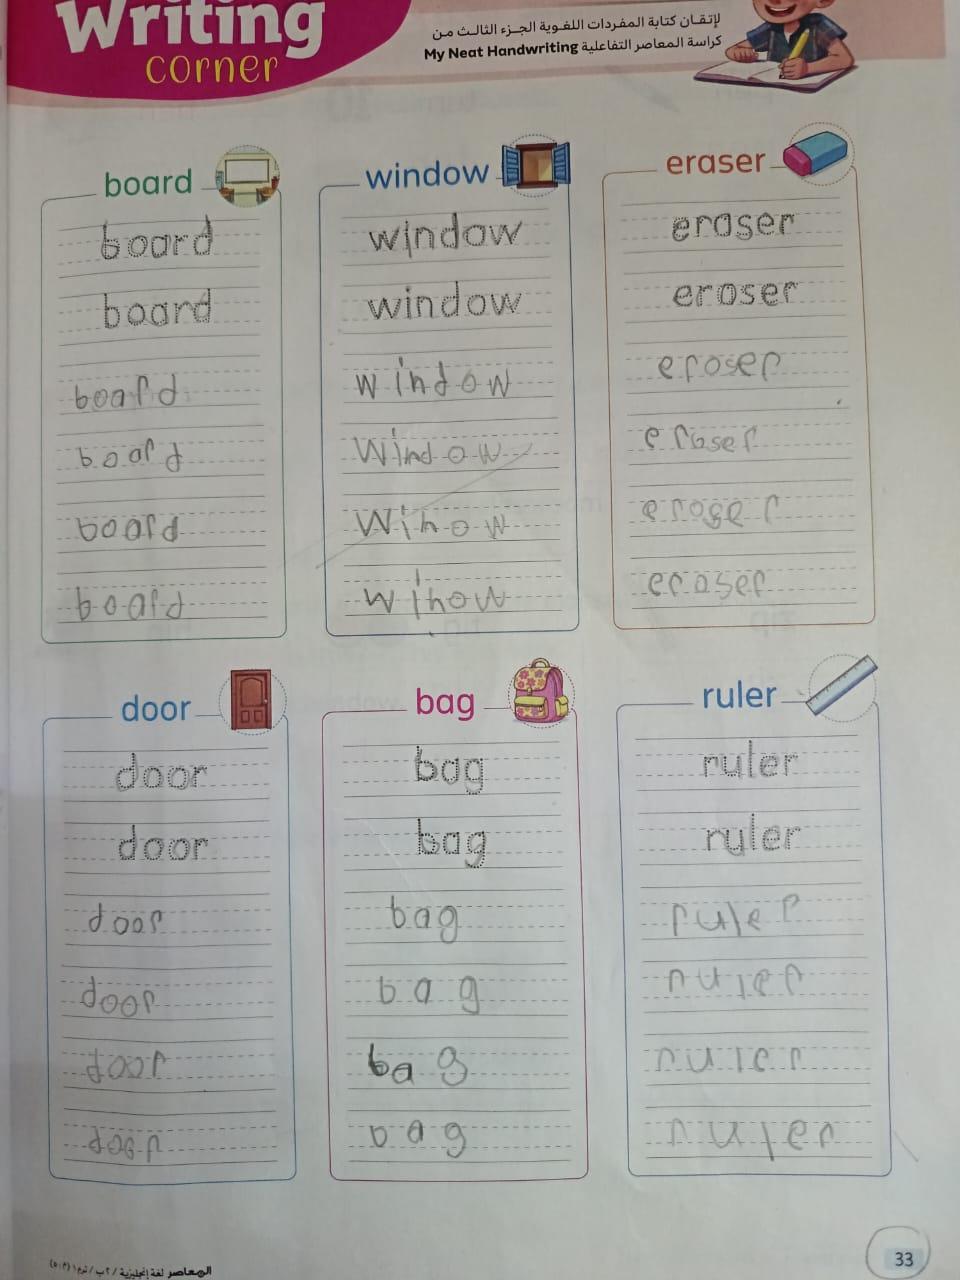 Writing
corner
لإتقان كتابة المفردات اللغوية الجزء الثالث من
كراسة المعاصر التفاعلية My Neat Handwriting
board
board
board
board
board
board
board
window
window
window
window
window
winow
wihow
eraser
eraser
eroser
eroser
eraser
eroser
eraser
door
door
door
door
door
door
door
bag
bag
bag
bag
bag
bag
bag
ruler
ruler
ruler
ruler
ruler
ruler
ruler
33
المعاصر لغة إنجليزية / ٢ب / تيرم١